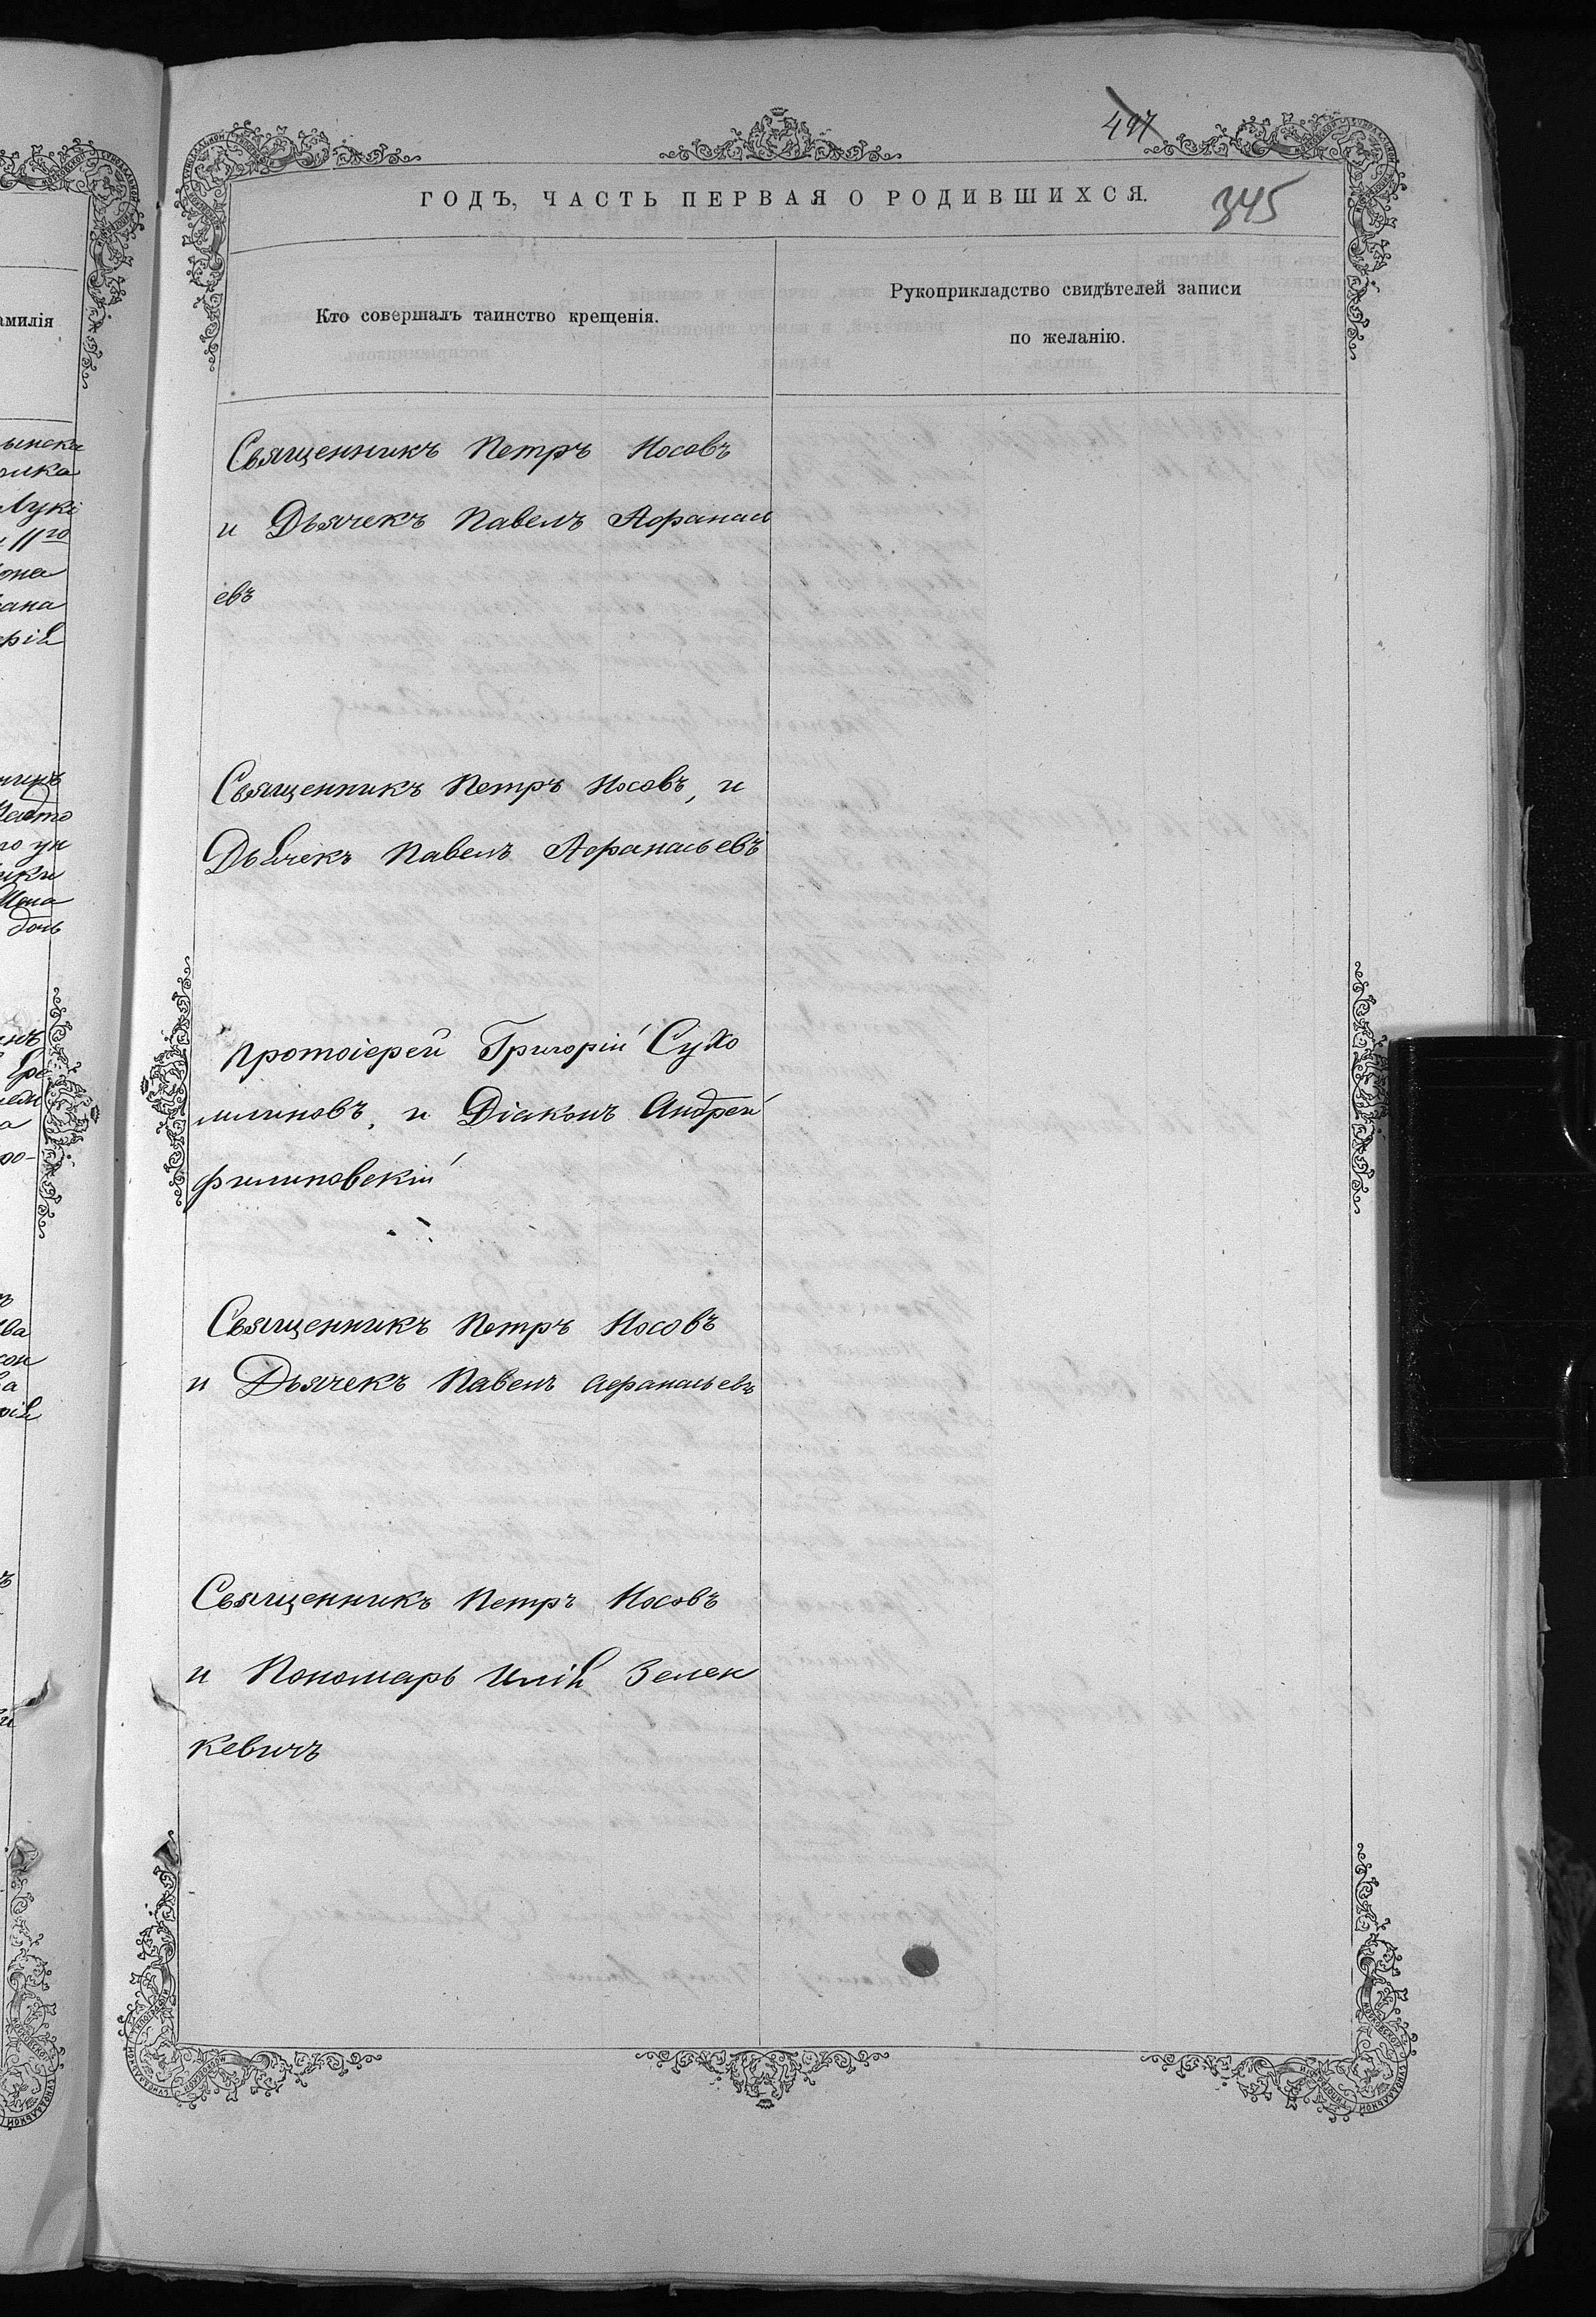 497
ГОДЪ, ЧАСТЬ ПЕРВАЯ О РОДИВШИХСЯ.
345
амилія
Кто совершалъ таинство крещенія.
Рукоприкладство свидѣтелей записи
по желанію.
Священникъ Петръ Носовъ
и Дьячекъ Павелъ Афанась
евъ
Священникъ Петръ Носовъ, и
Дьячекъ Павелъ Афанасьевъ
Протоіерей Григорій Сухо
млиновъ, и Діаконъ Андрей
Филиповскій
Священникъ Петръ Носовъ
и Дьячекъ Павелъ Афанасьевъ
Священникъ Петръ Носовъ
и Пономарь Илія Зелен
кевичъ